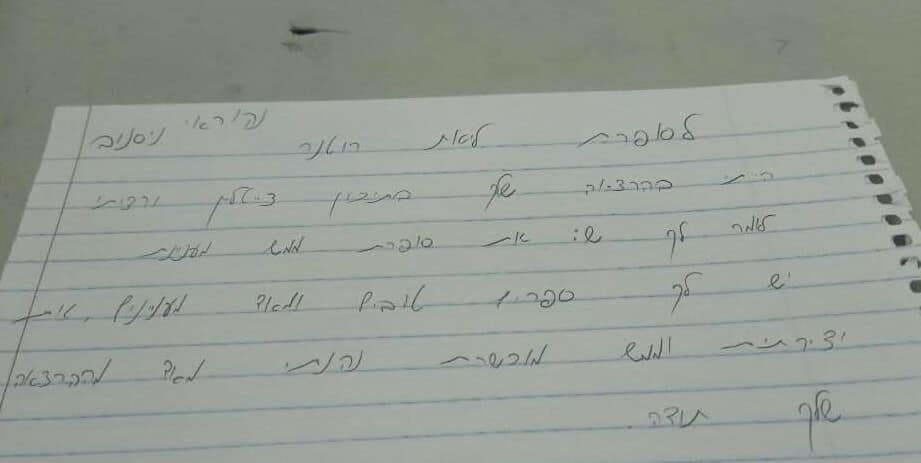 נהוראי ניסנוב
לסופרת ליאת רוטנר
הייתי בהרצאה שלך בתיכון דיזלין ורציתי
לומר לך ש: את סופרת ממש מעניינת
יש לך ספרים טובים ומאוד מעניינים, את
יצירתית וממש מוכשרת נהנתי מאוד מההרצאה
שלך תודה.